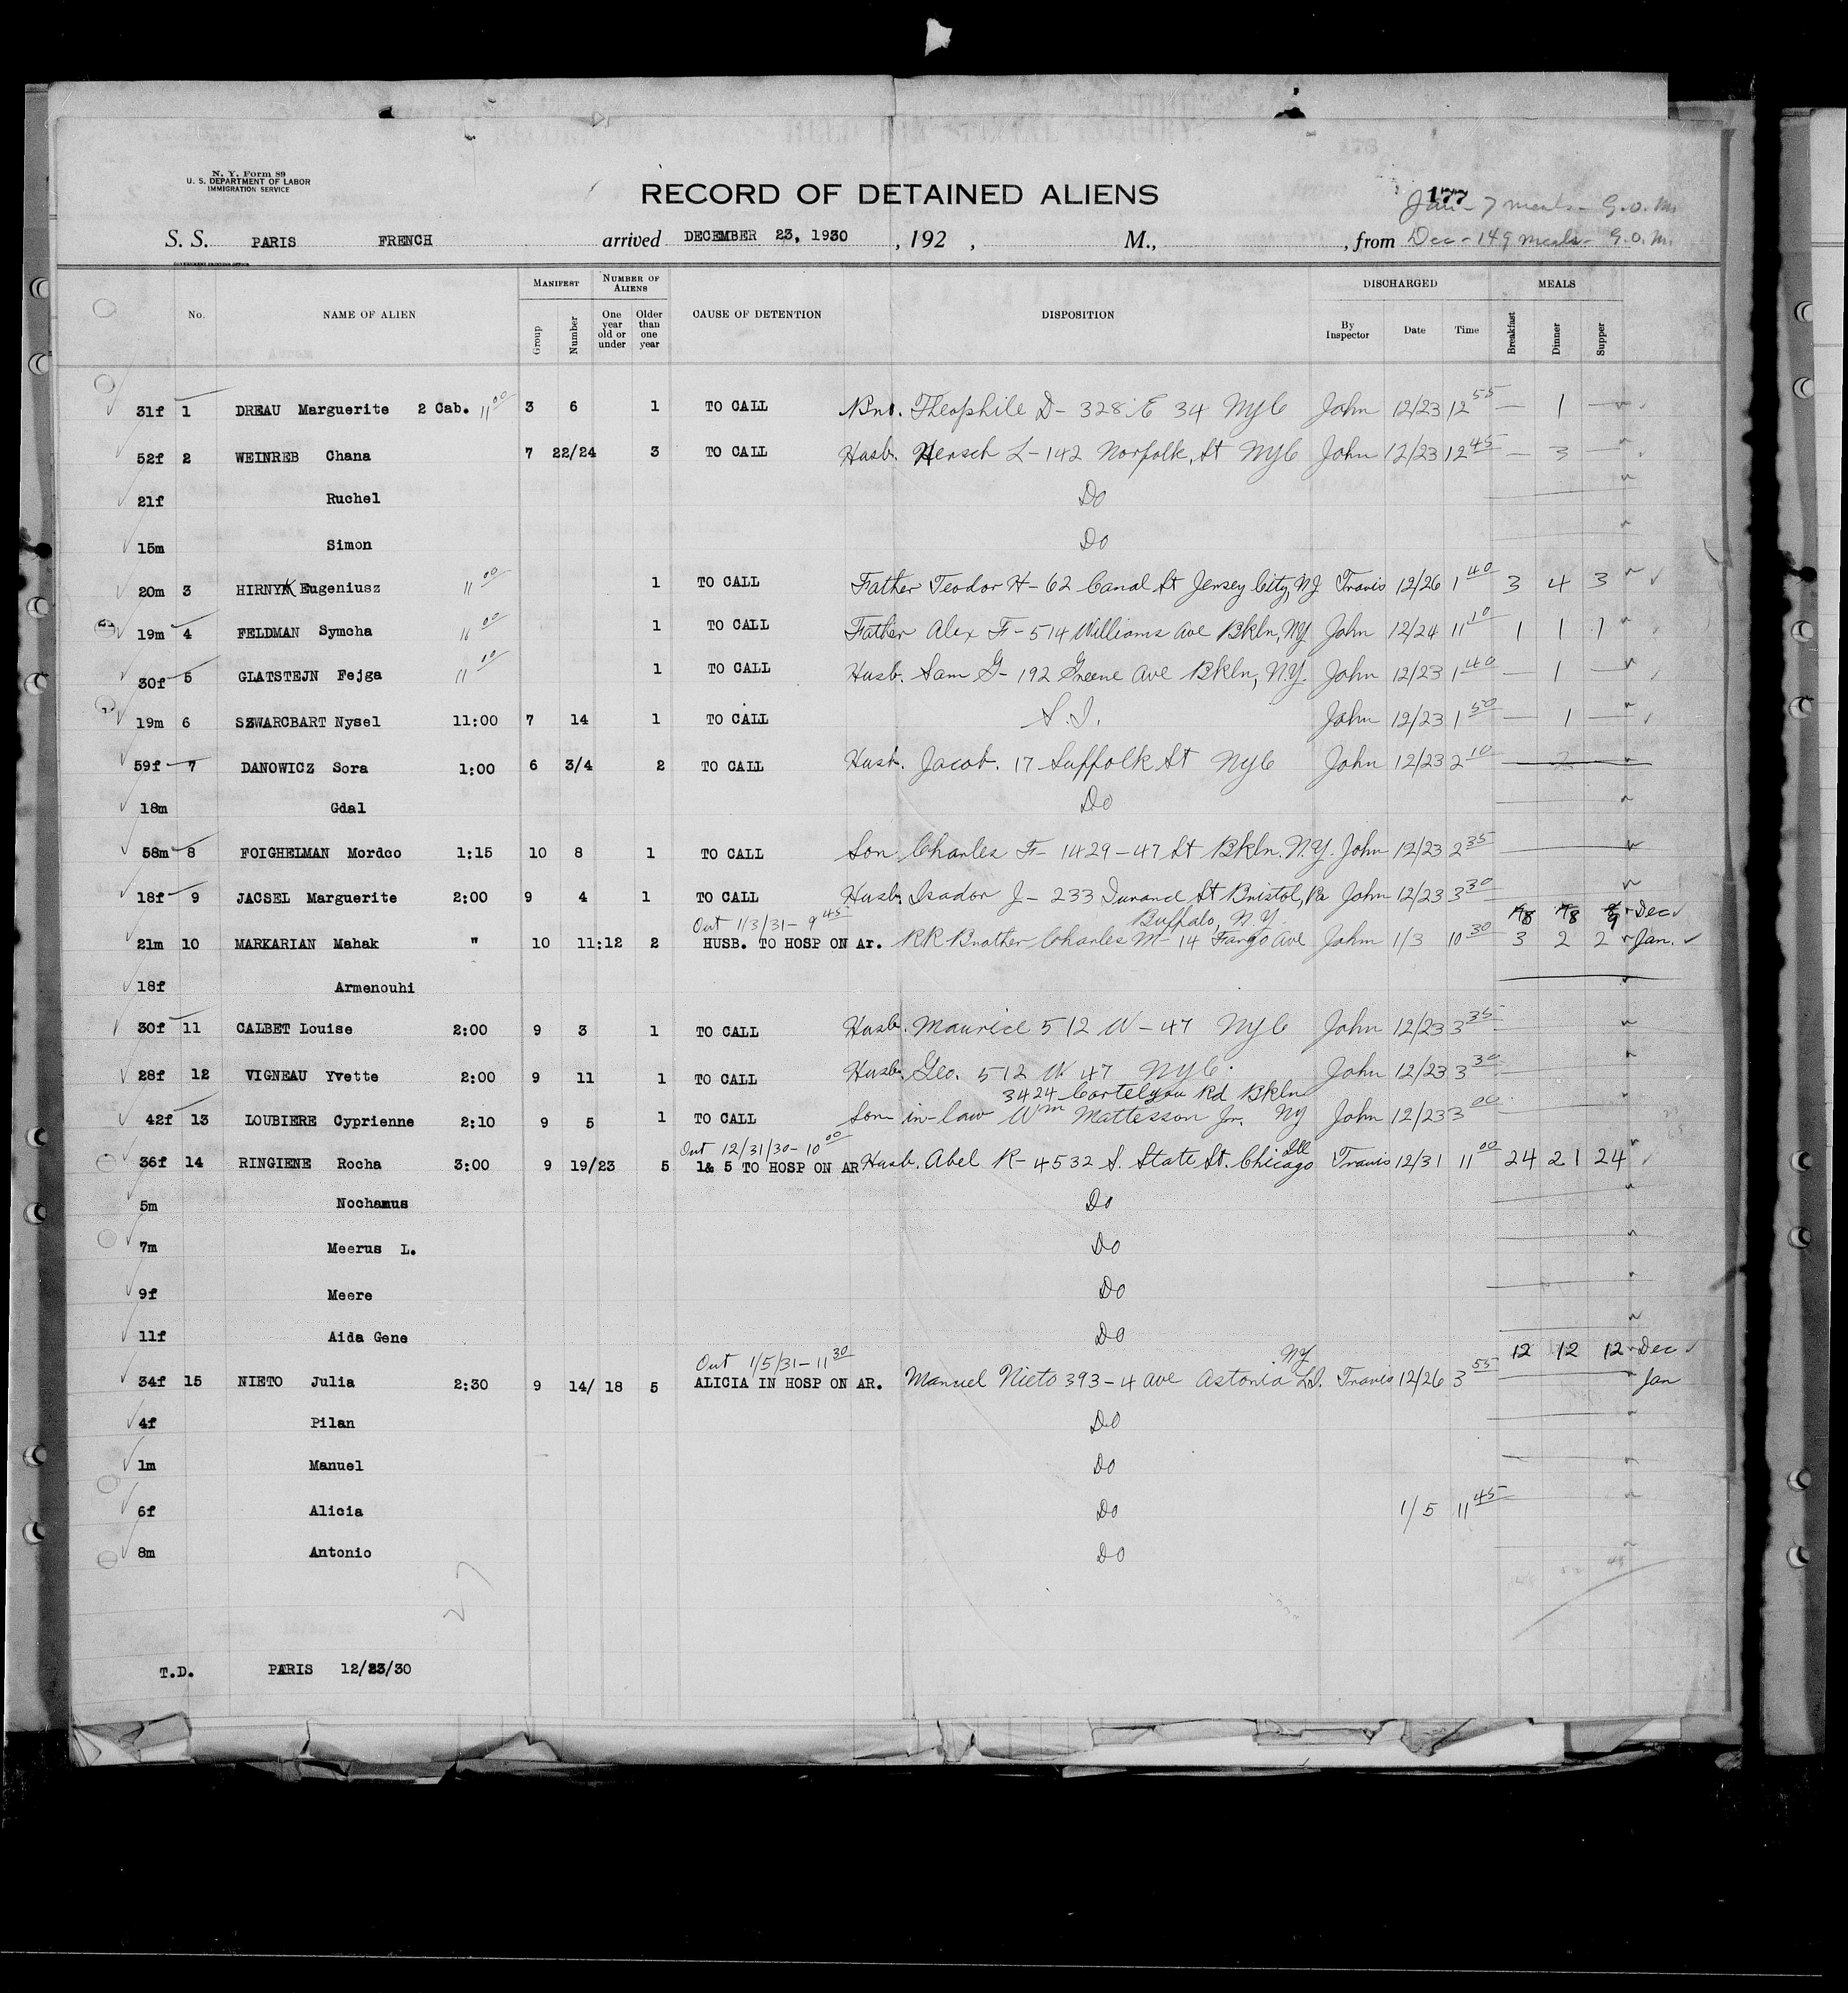 N. Y. Form 89
U. S. DEPARTMENT OF LABOR
IMMIGRATION SERVICE
RECORD OF DETAINED ALIENS
177
Jan - 7 meals - G.O.M.
S. S. PARIS FRENCH arrived DECEMBER 23, 1930 , 192 , M., , from Dec - 149 meals - G.O.M.
GOVERNMENT PRINTING OFFICE
No. NAME OF ALIEN MANIFEST Group Number NUMBER OF ALIENS One year old or under Older than one year CAUSE OF DETENTION DISPOSITION DISCHARGED By Inspector Date Time MEALS Breakfast Dinner Supper
31f 1 DREAU Marguerite 2 Cab. 11 00 3 6 1 TO CALL Bro. Theophile D - 328 E 34 NYC John 12/23 12 55 — 1 —
52f 2 WEINREB Chana 7 22/24 3 TO CALL Husb. Hersch L - 142 Norfolk, St NYC John 12/23 12 45 — 3 —
21f Ruchel Do
15m Simon Do
20m 3 HIRNYK Eugeniusz 11 00 1 TO CALL Father Teodor H - 62 Canal St Jersey City, NJ Travis 12/26 1 40 3 4 3
19m 4 FELDMAN Symcha 11 00 1 TO CALL Father Alex F - 514 Williams Ave Bkln, NY John 12/24 11 10 1 1 1
30f 5 GLATSTEJN Fejga 11 10 1 TO CALL Husb. Sam G - 192 Greene Ave Bkln, N.Y. John 12/23 1 40 — 1 —
19m 6 SZWARCBART Nysel 11:00 7 14 1 TO CALL S.I. John 12/23 1 50 — 1 —
59f 7 DANOWICZ Sora 1:00 6 3/4 2 TO CALL Husb. Jacob. 17 Suffolk St NYC John 12/23 2 10
18m Gdal Do
58m 8 FOIGHELMAN Mordco 1:15 10 8 1 TO CALL Son Charles F - 1429 - 47 St Bkln. N.Y. John 12/23 2 35
18f 9 JACSEL Marguerite 2:00 9 4 1 TO CALL Husb. Isador J - 233 Durand St Bristol, Pa John 12/23 3 30
Out 1/3/31 - 9 45 Buffalo, N.Y. 8 8 9 Dec
21m 10 MARKARIAN Mahak " 10 11:12 2 HUSB. TO HOSP ON Ar. RR Brother Charles M - 14 Fargo Ave John 1/3 10 30 3 2 2 Jan.
18f Armenouhi
30f 11 CALBET Louise 2:00 9 3 1 TO CALL Husb. Maurice 512 W - 47 NYC John 12/23 3 35
28f 12 VIGNEAU Yvette 2:00 9 11 1 TO CALL Husb. Geo. 512 W 47 NYC. John 12/23 3 30
3424 Cortelyou Rd Bkln
42f 13 LOUBIERE Cyprienne 2:10 9 5 1 TO CALL Son in-law Wm Mattesson Jr. NY John 12/23 3 00
Out 12/31/30 - 10 00 Ill
36f 14 RINGIENE Rocha 3:00 9 19/23 5 1& 5 TO HOSP ON AR Husb. Abel R - 4532 S. State St. Chicago Travis 12/31 11 00 24 21 24
5m Nochamus Do
7m Meerus L. Do
9f Meere Do
11f Aida Gene Do
Out 1/5/31 - 11 30 NY 12 12 12 Dec
34f 15 NIETO Julia 2:30 9 14/ 18 5 ALICIA IN HOSP ON AR. Manuel Nieto 393 - 4 Ave Astoria L.I. Travis 12/26 3 55 Jan
4f Pilan Do
1m Manuel Do
6f Alicia Do 1/5 11 45
8m Antonio Do
27
T.D. PARIS 12/23/30